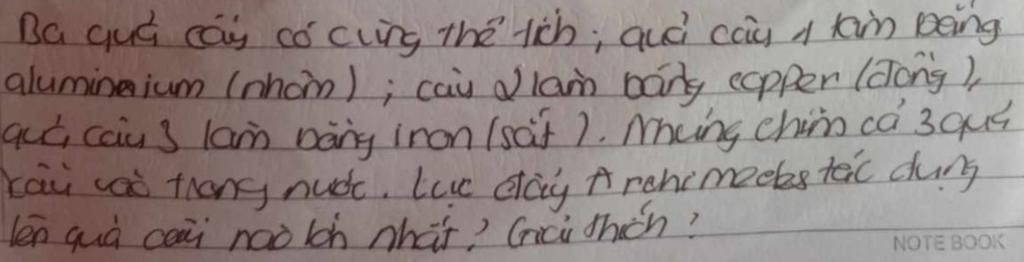 Ba quả cầu có cùng thể tích; quả cầu 1 làm bằng
aluminium (nhôm); cầu 2 làm bằng copper (đồng),
quả cầu 3 làm bằng iron (sắt). Nhúng chìm cả 3 quả
cầu vào trong nước. Lực đẩy Archimedes tác dụng
lên quả cầu nào lớn nhất? Giải thích?
NOTE BOOK